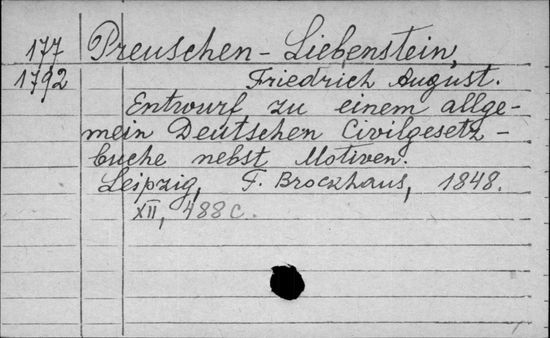 177 Preuschen-Liebenstein,
1792 Friedrich August.
Entwurf zu einem allge-
mein Deutschen Civilgesetz-
buche nebst Motiven.
Leipzig, F. Brockhaus, 1848.
XII, 488 c.